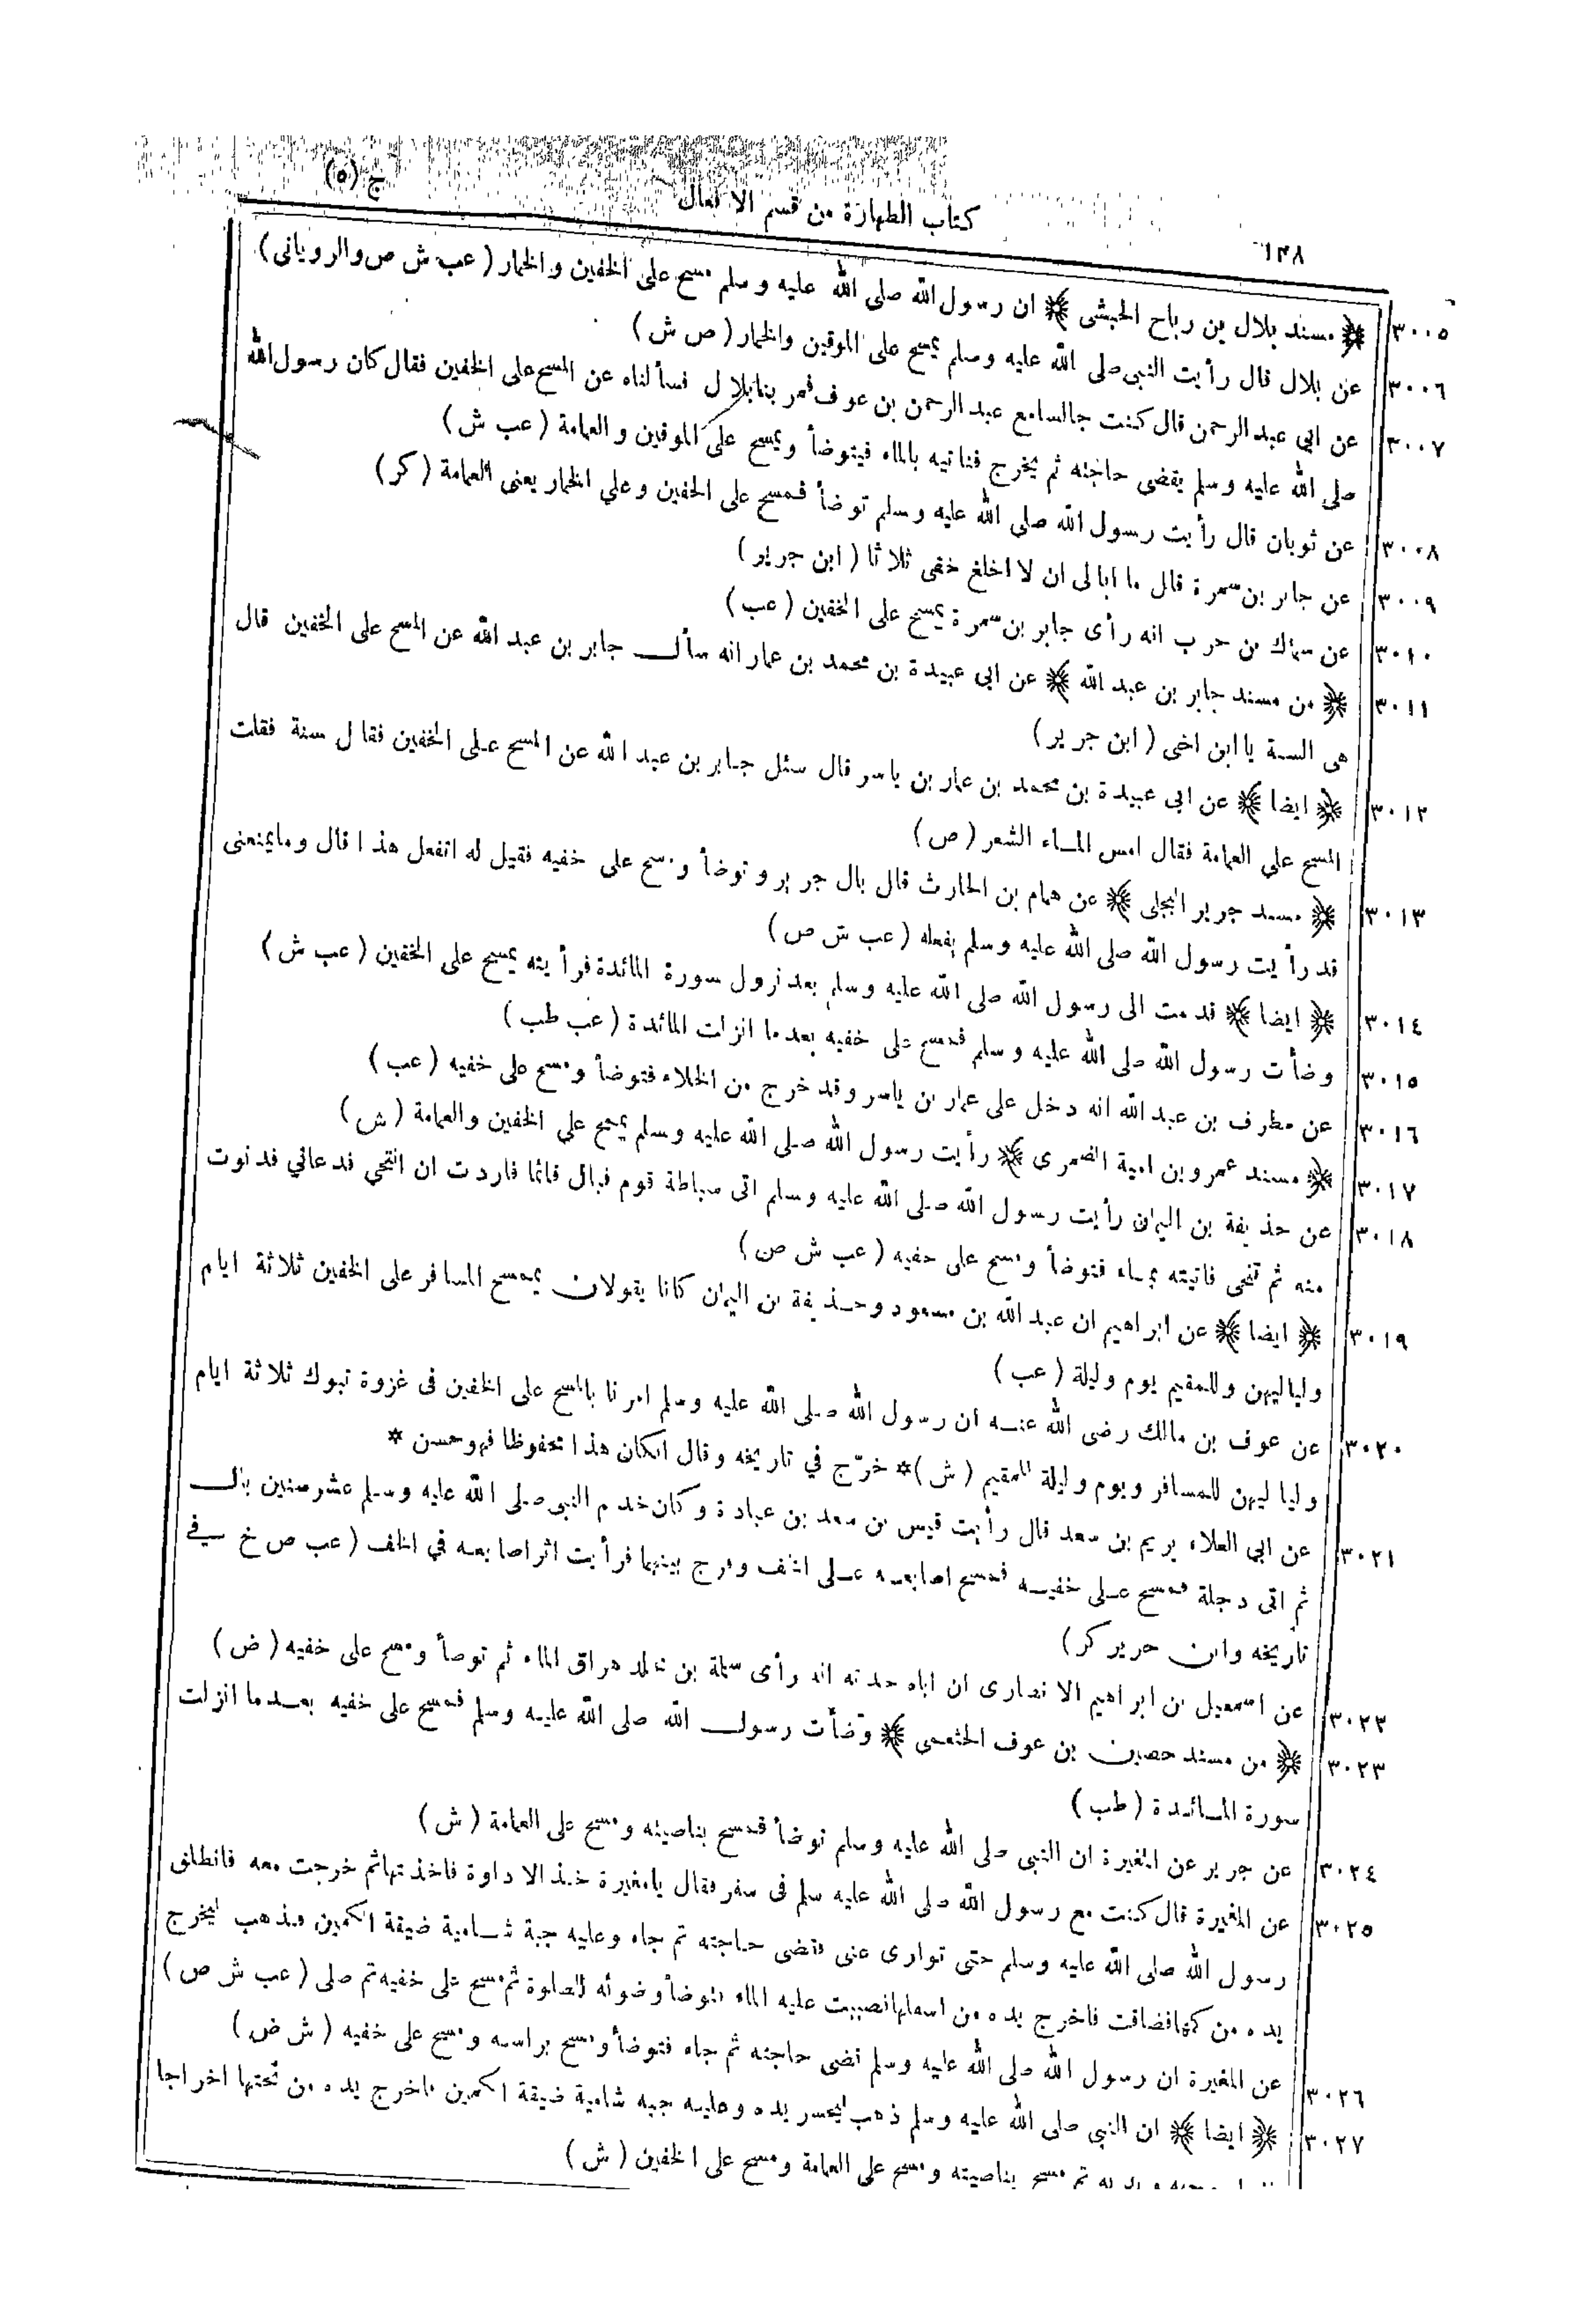 ج (٥)
كتاب الطهارة من قسم الافعال
١٣٨
٣٠٠٥ ﴿ مسند بلال بن رباح الحبشى ﴾ ان رسول الله صلى الله عليه وسلم مسح على الخفين والخمار (عب ش ص والرويانى)
٣٠٠٦ عن بلال قال رأيت النبى صلى الله عليه وسلم يمسح على الموقين والخمار (ص ش)
٣٠٠٧ عن ابى عبد الرحمن قال كنت جالسا مع عبد الرحمن بن عوف فمر بنا بلال فسألناه عن المسح على الخفين فقال كان رسول الله
صلى الله عليه وسلم يقضى حاجته ثم يخرج فناتيه بالماء فيتوضأ ويمسح على الموقين والعمامة (عب ش)
٣٠٠٨ عن ثوبان قال رأيت رسول الله صلى الله عليه وسلم توضأ فمسح على الخفين وعلى الخمار يعنى العمامة (كر)
٣٠٠٩ عن جابر بن سمرة قال ما ابالى ان لا اخلع خفى ثلاثا (ابن جرير)
٣٠١٠ عن سماك بن حرب انه رأى جابر بن سمرة يمسح على الخفين (عب)
٣٠١١ ﴿ من مسند جابر بن عبد الله ﴾ عن ابى عبيدة بن محمد بن عمار انه سأل جابر بن عبد الله عن المسح على الخفين قال
هى السنة يا ابن اخى (ابن جرير)
٣٠١٢ ﴿ ايضا ﴾ عن ابى عبيدة بن محمد بن عمار بن ياسر قال سئل جابر بن عبد الله عن المسح على الخفين فقال سنة فقلت
المسح على العمامة فقال امس الماء الشعر (ص)
٣٠١٣ ﴿ مسند جرير البجلى ﴾ عن همام بن الحارث قال بال جرير وتوضأ ومسح على خفيه فقيل له اتفعل هذا قال وما يمنعنى
قد رأيت رسول الله صلى الله عليه وسلم يفعله (عب ش ص)
٣٠١٤ ﴿ ايضا ﴾ قدمت الى رسول الله صلى الله عليه وسلم بعد نزول سورة المائدة فرأيته يمسح على الخفين (عب ش)
٣٠١٥ وضأت رسول الله صلى الله عليه وسلم فمسح على خفيه بعد ما انزلت المائدة (عب طب)
٣٠١٦ عن مطرف بن عبد الله انه دخل على عمار بن ياسر وقد خرج من الخلاء فتوضأ ومسح على خفيه (عب)
٣٠١٧ ﴿ مسند عمرو بن امية الضمرى ﴾ رأيت رسول الله صلى الله عليه وسلم يمسح على الخفين والعمامة (ش)
٣٠١٨ عن حذيفة بن اليمان رأيت رسول الله صلى الله عليه وسلم اتى سباطة قوم فبال قائما فاردت ان اتنحى فدعانى فدنوت
منه ثم تنحى فاتيته بماء فتوضأ ومسح على خفيه (عب ش ص)
٣٠١٩ ﴿ ايضا ﴾ عن ابراهيم ان عبد الله بن مسعود وحذيفة بن اليمان كانا يقولان يمسح المسافر على الخفين ثلاثة ايام
ولياليهن وللمقيم يوم وليلة (عب)
٣٠٢٠ عن عوف بن مالك رضى الله عنه ان رسول الله صلى الله عليه وسلم امرنا بالمسح على الخفين فى غزوة تبوك ثلاثة ايام
ولياليهن للمسافر ويوم وليلة للمقيم (ش) * خرّج في تاريخه وقال ان كان هذا محفوظا فهو حسن *
٣٠٢١ عن ابى العلاء بريم بن سعد قال رأيت قيس بن سعد بن عبادة وكان خدم النبى صلى الله عليه وسلم عشر سنين بال
ثم اتى دجلة فمسح على خفيه فمسح اصابعه على الخف وفرج بينهما فرأيت اثر اصابعه في الخف (عب ص خ في
تاريخه وابن جرير كر)
٣٠٢٢ عن اسمعيل بن ابراهيم الانصارى ان اباه حدثه انه رأى سلمة بن مخلد هراق الماء ثم توضأ ومسح على خفيه (ض)
٣٠٢٣ ﴿ من مسند حصين بن عوف الخثعمى ﴾ وضأت رسول الله صلى الله عليه وسلم فمسح على خفيه بعد ما انزلت
سورة المائدة (طب)
٣٠٢٤ عن جرير عن المغيرة ان النبى صلى الله عليه وسلم توضأ فمسح بناصيته ومسح على العمامة (ش)
٣٠٢٥ عن المغيرة قال كنت مع رسول الله صلى الله عليه سلم فى سفر فقال يا مغيرة خذ الاداوة فاخذتها ثم خرجت معه فانطلق
رسول الله صلى الله عليه وسلم حتى توارى عنى فقضى حاجته ثم جاء وعليه جبة شامية ضيقة الكمين فذهب ليخرج
يده من كمها فضاقت فاخرج يده من اسفلها فصببت عليه الماء فتوضأ وضوئه للصلوة ثم مسح على خفيه ثم صلى (عب ش ص)
٣٠٢٦ عن المغيرة ان رسول الله صلى الله عليه وسلم قضى حاجته ثم جاء فتوضأ ومسح براسه ومسح على خفيه (ش ض)
٣٠٢٧ ﴿ ايضا ﴾ ان النبى صلى الله عليه وسلم ذهب ليحسر يده وعليه جبه شامية ضيقة الكمين فاخرج يده من تحتها اخراجا
ثم مسح بناصيته ومسح على العمامة ومسح على الخفين (ش)